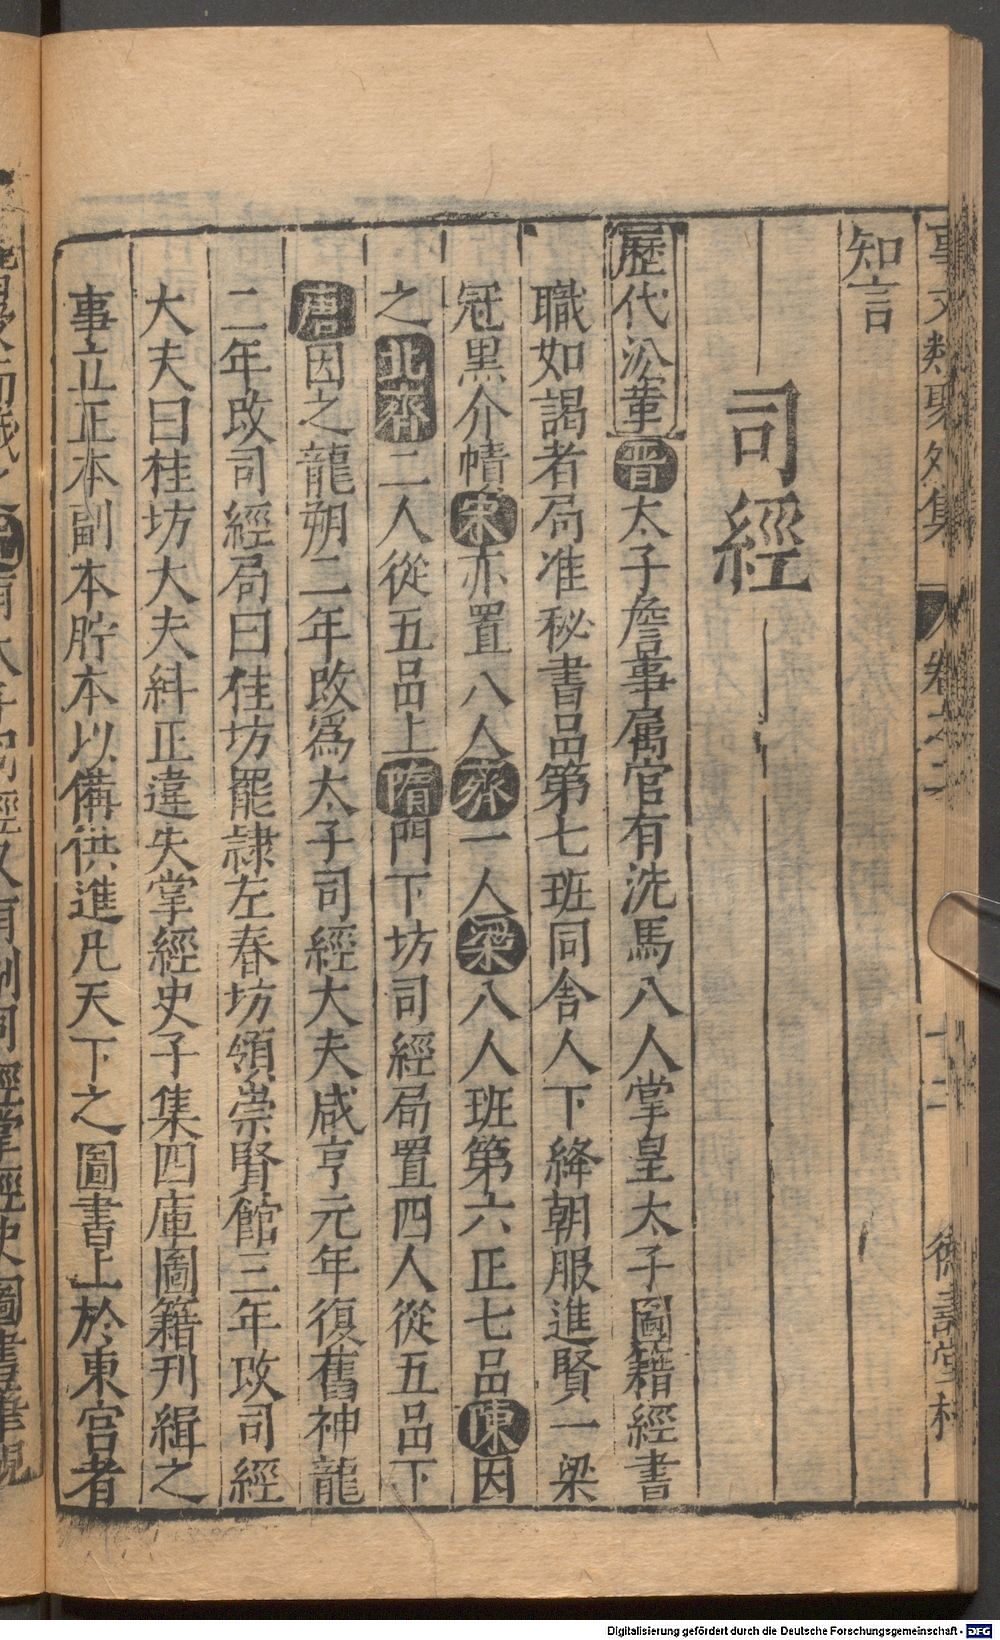 事文類聚外集 卷之二 十二 德壽堂梓
知言
司經
歷代㳂革晉太子詹事属官有洗馬八人掌皇太子圖籍經書
職如謁者局准秘書品第七班同舍人下絳朝服進賢一梁
冠黑介幘宋亦置八人齊一人梁八人班第六正七品陳因
之北齊二人從五品上隋門下坊司經局置四人從五品下
唐因之龍朔二年改爲太子司經大夫咸亨元年復舊神龍
二年改司經局曰桂坊罷隷左春坊領崇賢館三年改司經
大夫曰桂坊大夫糾正違失掌經史子集四庫圖籍刋緝之
事立正本副本貯本以備供進凡天下之圖書上於東宮者
Digitalisierung gefördert durch die Deutsche Forschungsgemeinschaft - DFG